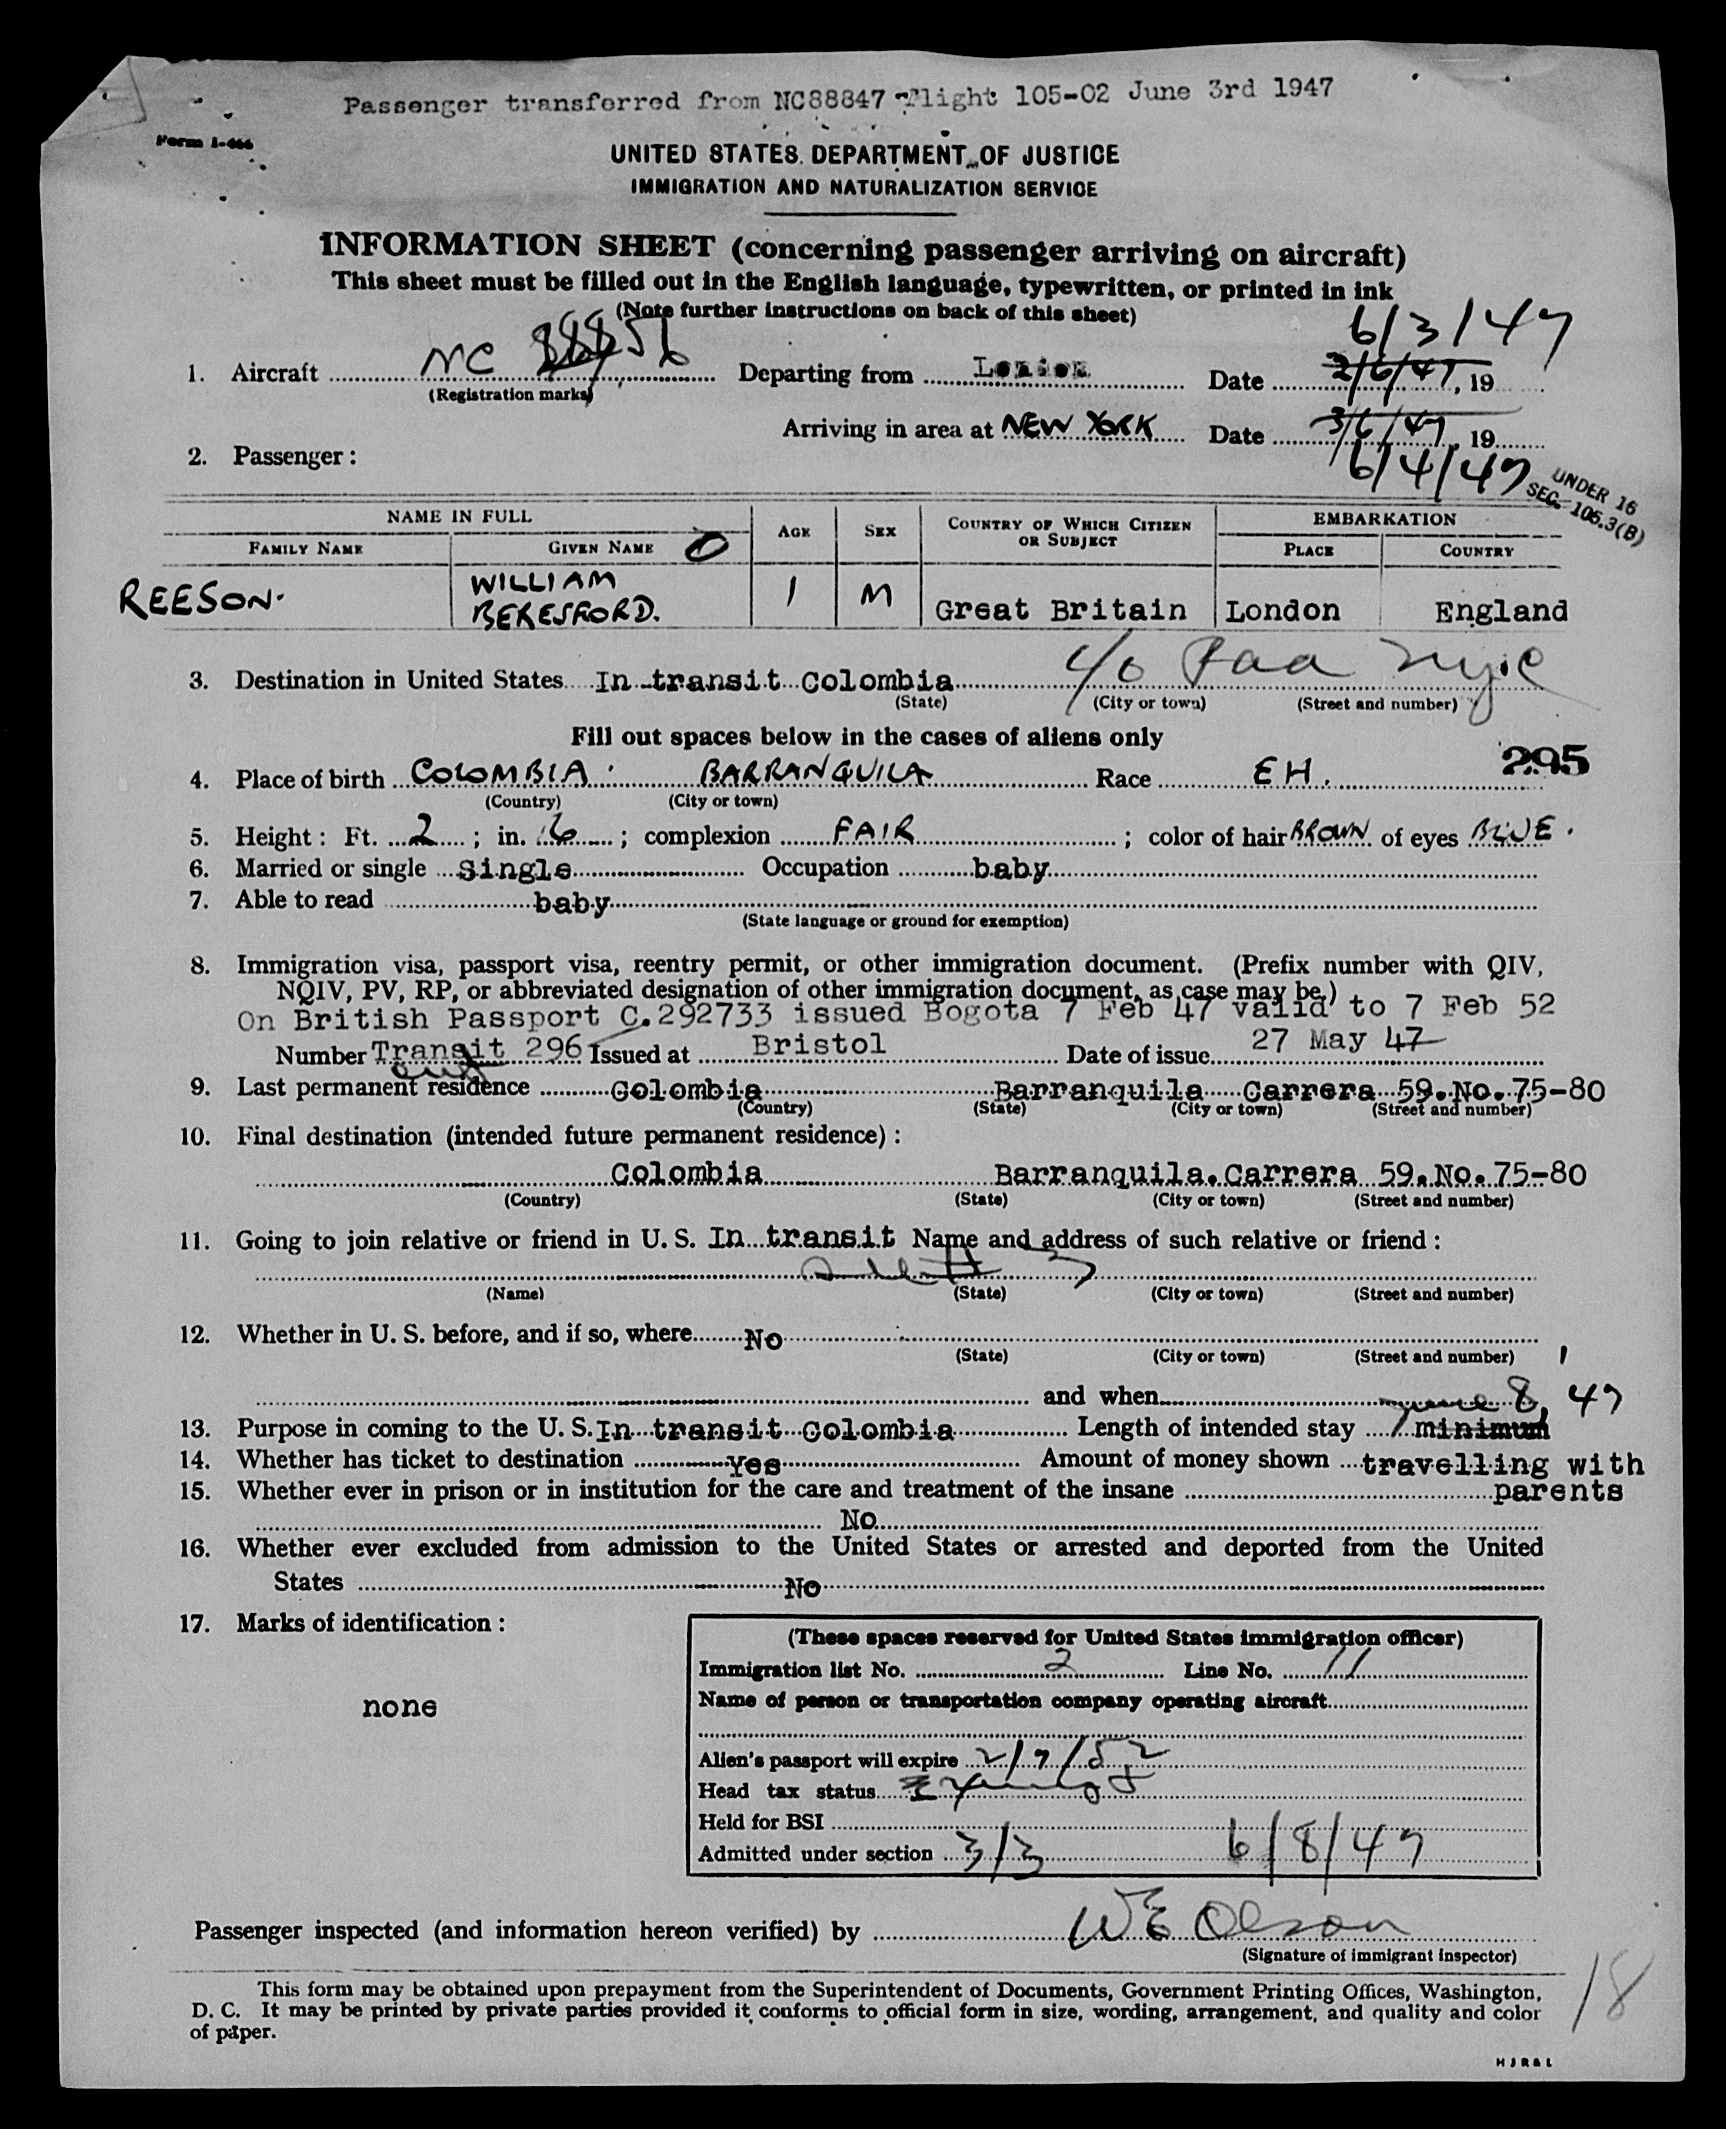 Passenger transferred from NC88847 Flight 105-02 June 3rd 1947
Form I-466
UNITED STATES DEPARTMENT OF JUSTICE
IMMIGRATION AND NATURALIZATION SERVICE
INFORMATION SHEET (concerning passenger arriving on aircraft)
This sheet must be filled out in the English language, typewritten, or printed in ink
(Note further instructions on back of this sheet)
6/3/47
1. Aircraft NC 88856 Departing from London Date 2/6/47, 19
(Registration marks)
Arriving in area at NEW YORK Date 3/6/47, 19
6/4/47
2. Passenger:
UNDER 16
SEC. 105.3(B)
NAME IN FULL AGE SEX COUNTRY OF WHICH CITIZEN OR SUBJECT EMBARKATION
FAMILY NAME GIVEN NAME PLACE COUNTRY
REESON. WILLIAM BERESFORD. 1 M Great Britain London England
3. Destination in United States In transit Colombia c/o Paa nyc
(State) (City or town) (Street and number)
Fill out spaces below in the cases of aliens only
295
4. Place of birth COLOMBIA. BARRANQUILA Race EH.
(Country) (City or town)
5. Height: Ft. 2; in. 6; complexion FAIR; color of hair BROWN of eyes BLUE.
6. Married or single Single Occupation baby
7. Able to read baby
(State language or ground for exemption)
8. Immigration visa, passport visa, reentry permit, or other immigration document. (Prefix number with QIV,
NQIV, PV, RP, or abbreviated designation of other immigration document, as case may be.)
On British Passport C.292733 issued Bogota 7 Feb 47 valid to 7 Feb 52
Number Transit 296 Issued at Bristol Date of issue 27 May 47
9. Last permanent residence Colombia Barranquila Carrera 59.No.75-80
(Country) (State) (City or town) (Street and number)
10. Final destination (intended future permanent residence):
Colombia Barranquila.Carrera 59.No.75-80
(Country) (State) (City or town) (Street and number)
11. Going to join relative or friend in U. S. In transit Name and address of such relative or friend:
(Name) (State) (City or town) (Street and number)
12. Whether in U. S. before, and if so, where No
(State) (City or town) (Street and number)
and when
June 8, 47
13. Purpose in coming to the U. S. In transit Colombia Length of intended stay minimum
14. Whether has ticket to destination Yes Amount of money shown travelling with
15. Whether ever in prison or in institution for the care and treatment of the insane parents
No
16. Whether ever excluded from admission to the United States or arrested and deported from the United
States No
17. Marks of identification:
none
(These spaces reserved for United States immigration officer)
Immigration list No. 2 Line No. 11
Name of person or transportation company operating aircraft
Alien's passport will expire 2/7/52
Head tax status
Held for BSI
Admitted under section 3/3 6/8/47
Passenger inspected (and information hereon verified) by WE Olson
(Signature of immigrant inspector)
18
This form may be obtained upon prepayment from the Superintendent of Documents, Government Printing Offices, Washington,
D. C. It may be printed by private parties provided it conforms to official form in size, wording, arrangement, and quality and color
of paper.
HJR&L